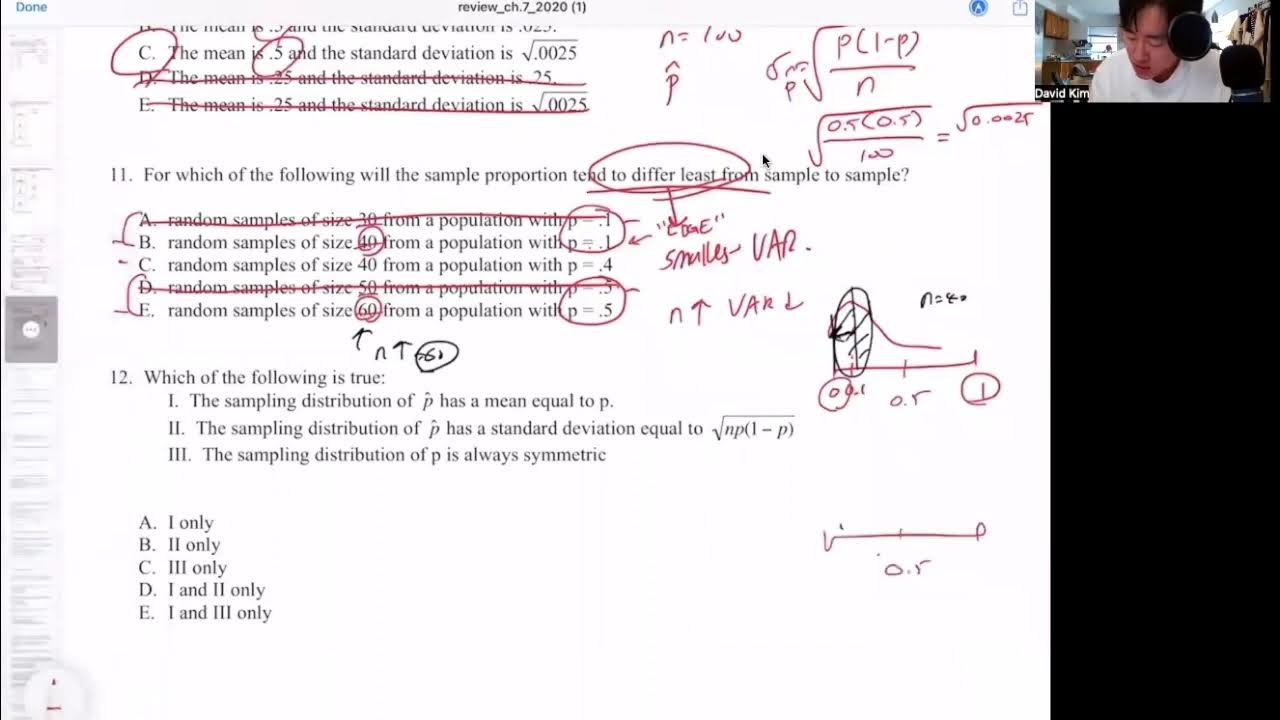 Done
review_ch.7_2020 (1)
David Kim
C. The mean is .5 and the standard deviation is √.0025
D. The mean is .25 and the standard deviation is .25.
E. The mean is .25 and the standard deviation is √.0025
n = 100
p̂
√p(1-p)/n
√0.5(0.5)/100 = √0.0025
11. For which of the following will the sample proportion tend to differ least from sample to sample?
A. random samples of size 30 from a population with p = .1
B. random samples of size 40 from a population with p = .1
C. random samples of size 40 from a population with p = .4
D. random samples of size 50 from a population with p = .5
E. random samples of size 60 from a population with p = .5
"EDGE"
smallest VAR.
n↑ VAR↓
n=40
0 0.1 0.5 1
n↑ 60
12. Which of the following is true:
I. The sampling distribution of p̂ has a mean equal to p.
II. The sampling distribution of p̂ has a standard deviation equal to √np(1 − p)
III. The sampling distribution of p is always symmetric
A. I only
B. II only
C. III only
D. I and II only
E. I and III only
0.5